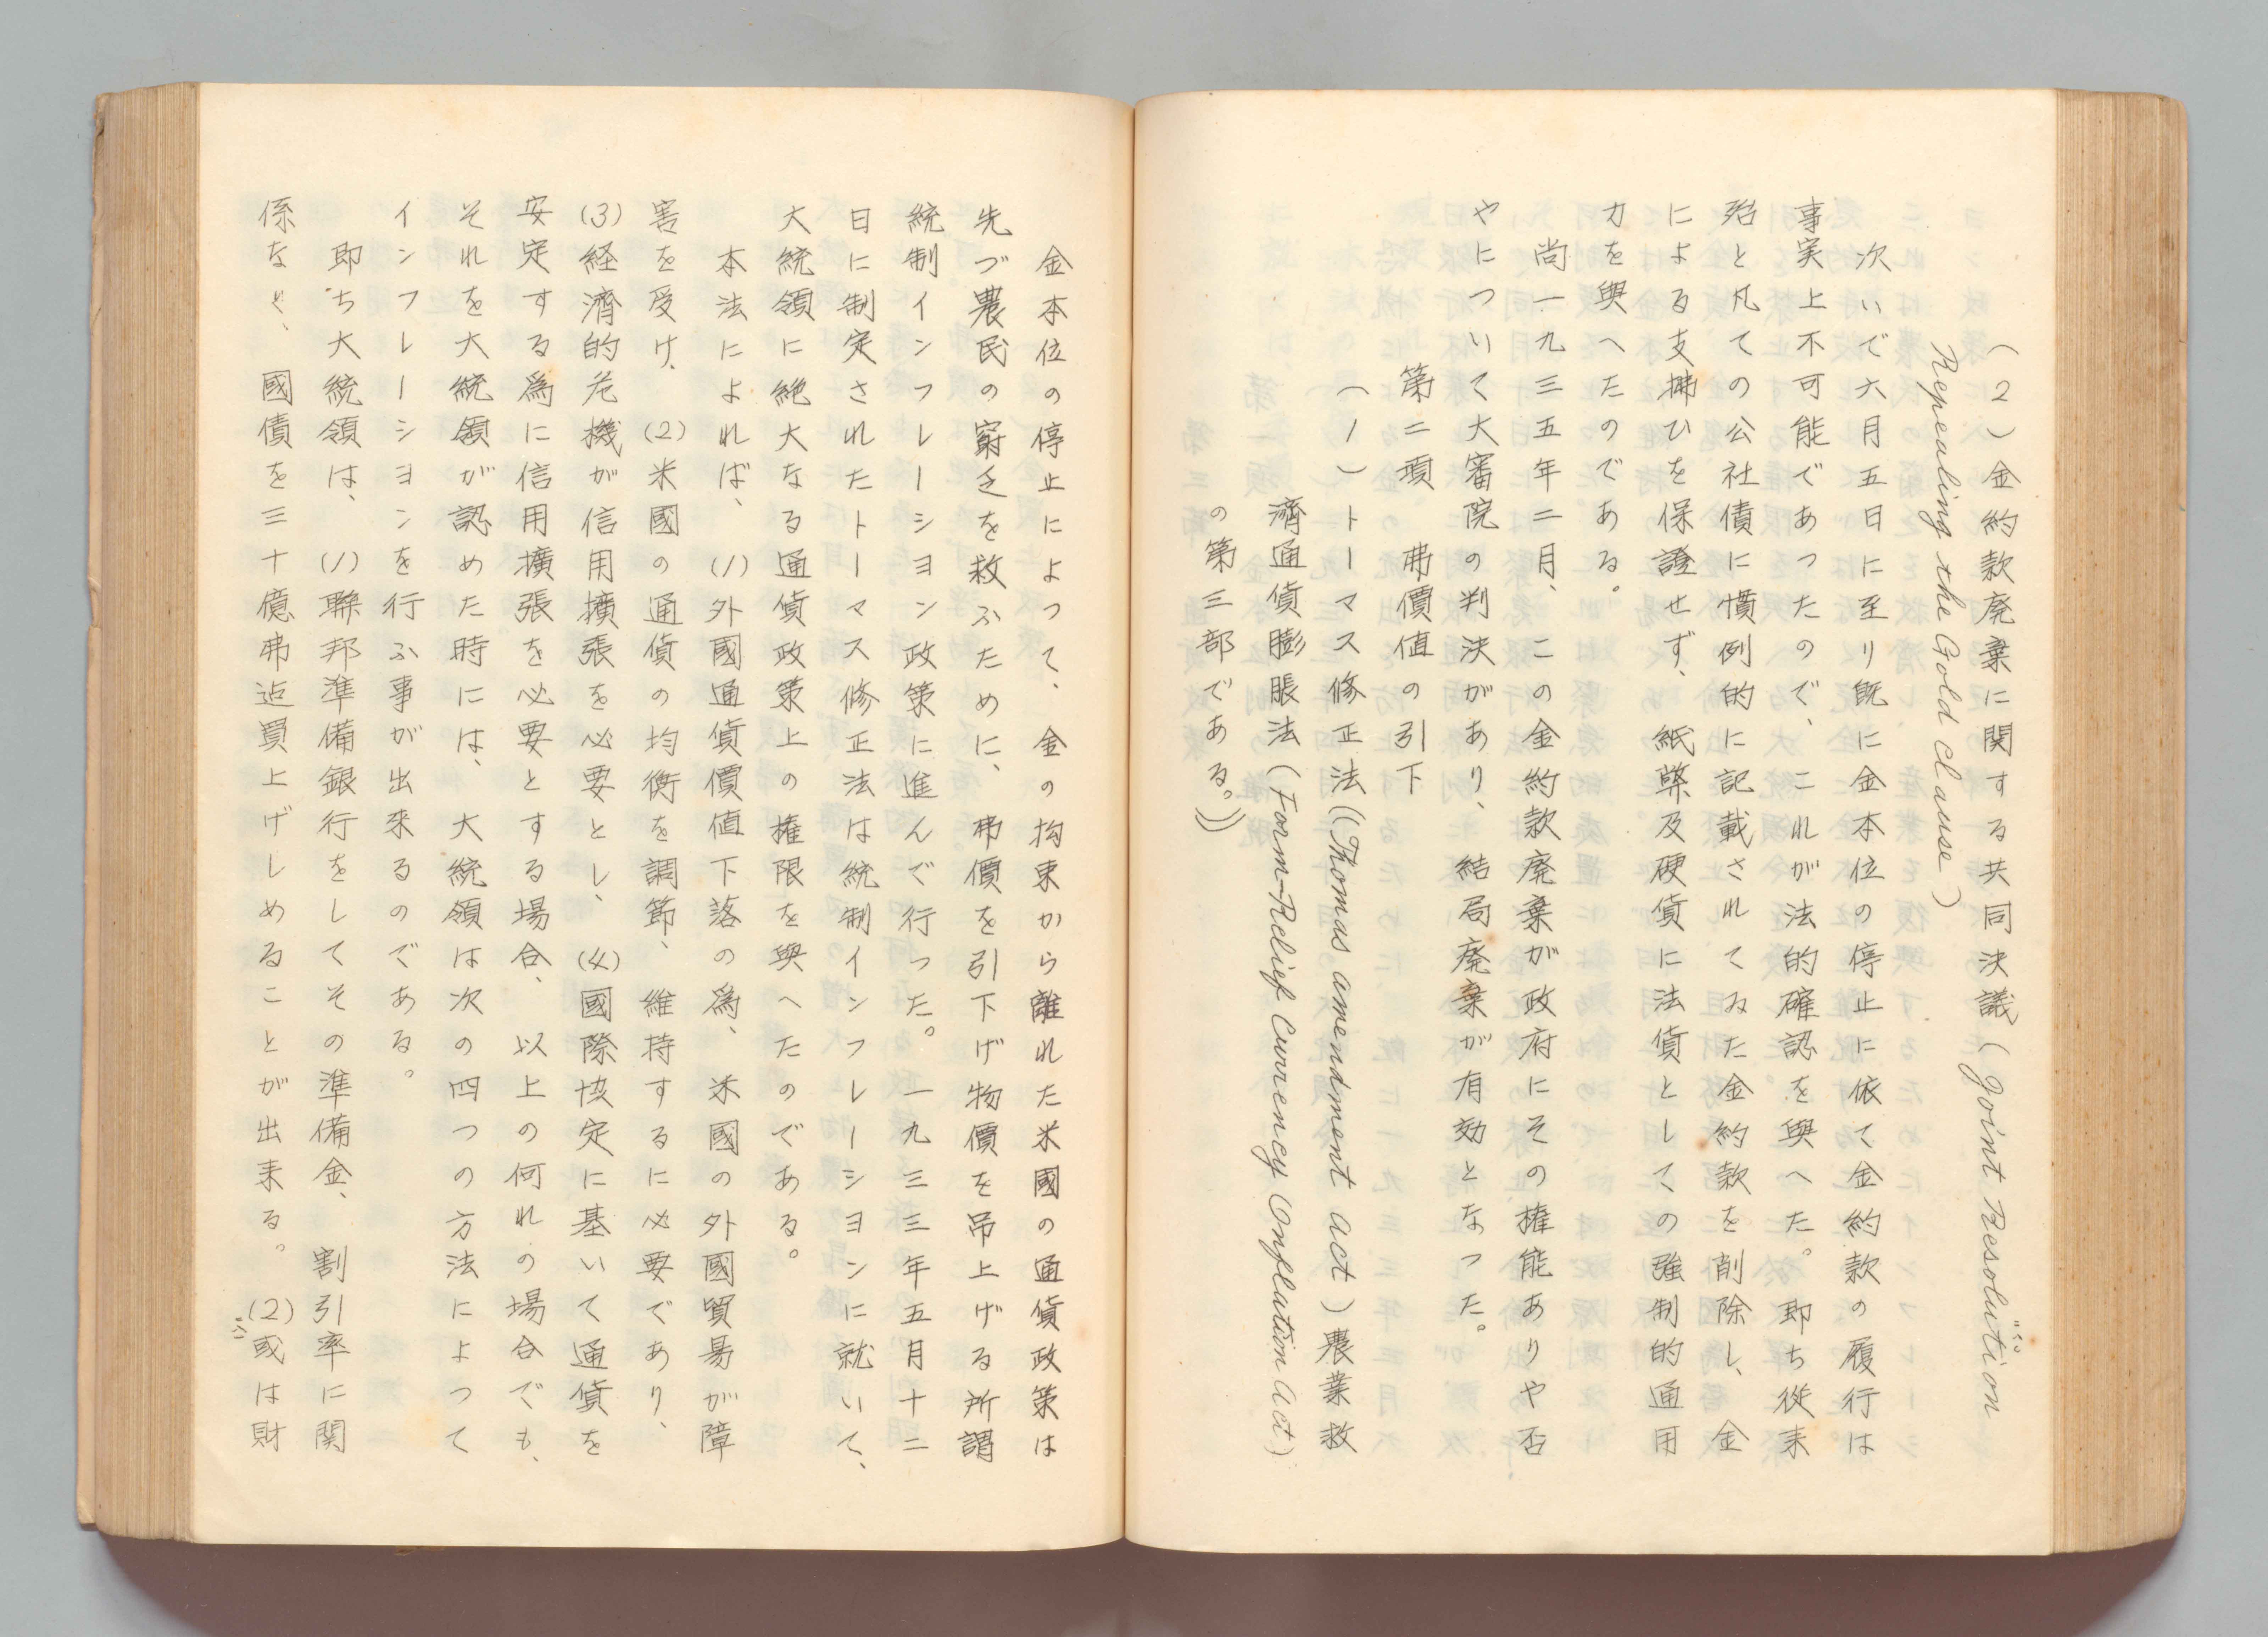 (2)金約款廃棄に関する共同決議(Joint Ressolution
Repealing the Gold Clause)
次いで六月五日に至り既に金本位の停止に依て金約款の履行は
事実上不可能であつたので、これが法的確認を與へた。即ち從来
殆と凡ての公社債に慣例的に記載されてゐた金約款を削除し、金
による支拂ひを保證せず、紙幣及硬貨に法貨としての強制的通用
力を與へたのである。
尚一九三五年二月、この金約款廃棄が政府にその権能ありや否
やについて大審院の判決があり、結局廃棄が有効となつた。
第二項 弗價値の引下
(1)トーマス修正法((Thomas amendment act)農業救
濟通貨膨脹法(Form-Relief Currency Onflation Act)
の第三部である。))
金本位の停止によつて、金の拘束から離れた米國の通貨政策は
先づ農民の窮乏を救ふために、弗價を引下げ物價を吊上げる所謂
統制インフレーシヨン政策に進んで行つた。一九三三年五月十二
日に制定されたトーマス修正法は統制インフレーシヨンに就いて、
大統領に絶大なる通貨政策上の権限を與へたのである。
本法によれば、(1)外國通貨價値下落の為、米國の外國貿易が障
害を受け、(2)米國の通貨の均衡を調節、維持するに必要であり、
(3)経濟的危機が信用擴張を必要とし、(4)國際協定に基いて通貨を
安定する為に信用擴張を必要とする場合、以上の何れの場合でも、
それを大統領が認めた時には、大統領は次の四つの方法によつて
インフレーシヨンを行ふ事が出來るのである。
即ち大統領は、(1)聯邦準備銀行をしてその準備金、割引率に関
係なく、國債を三十億弗迄買上げしめることが出来る。(2)或は財